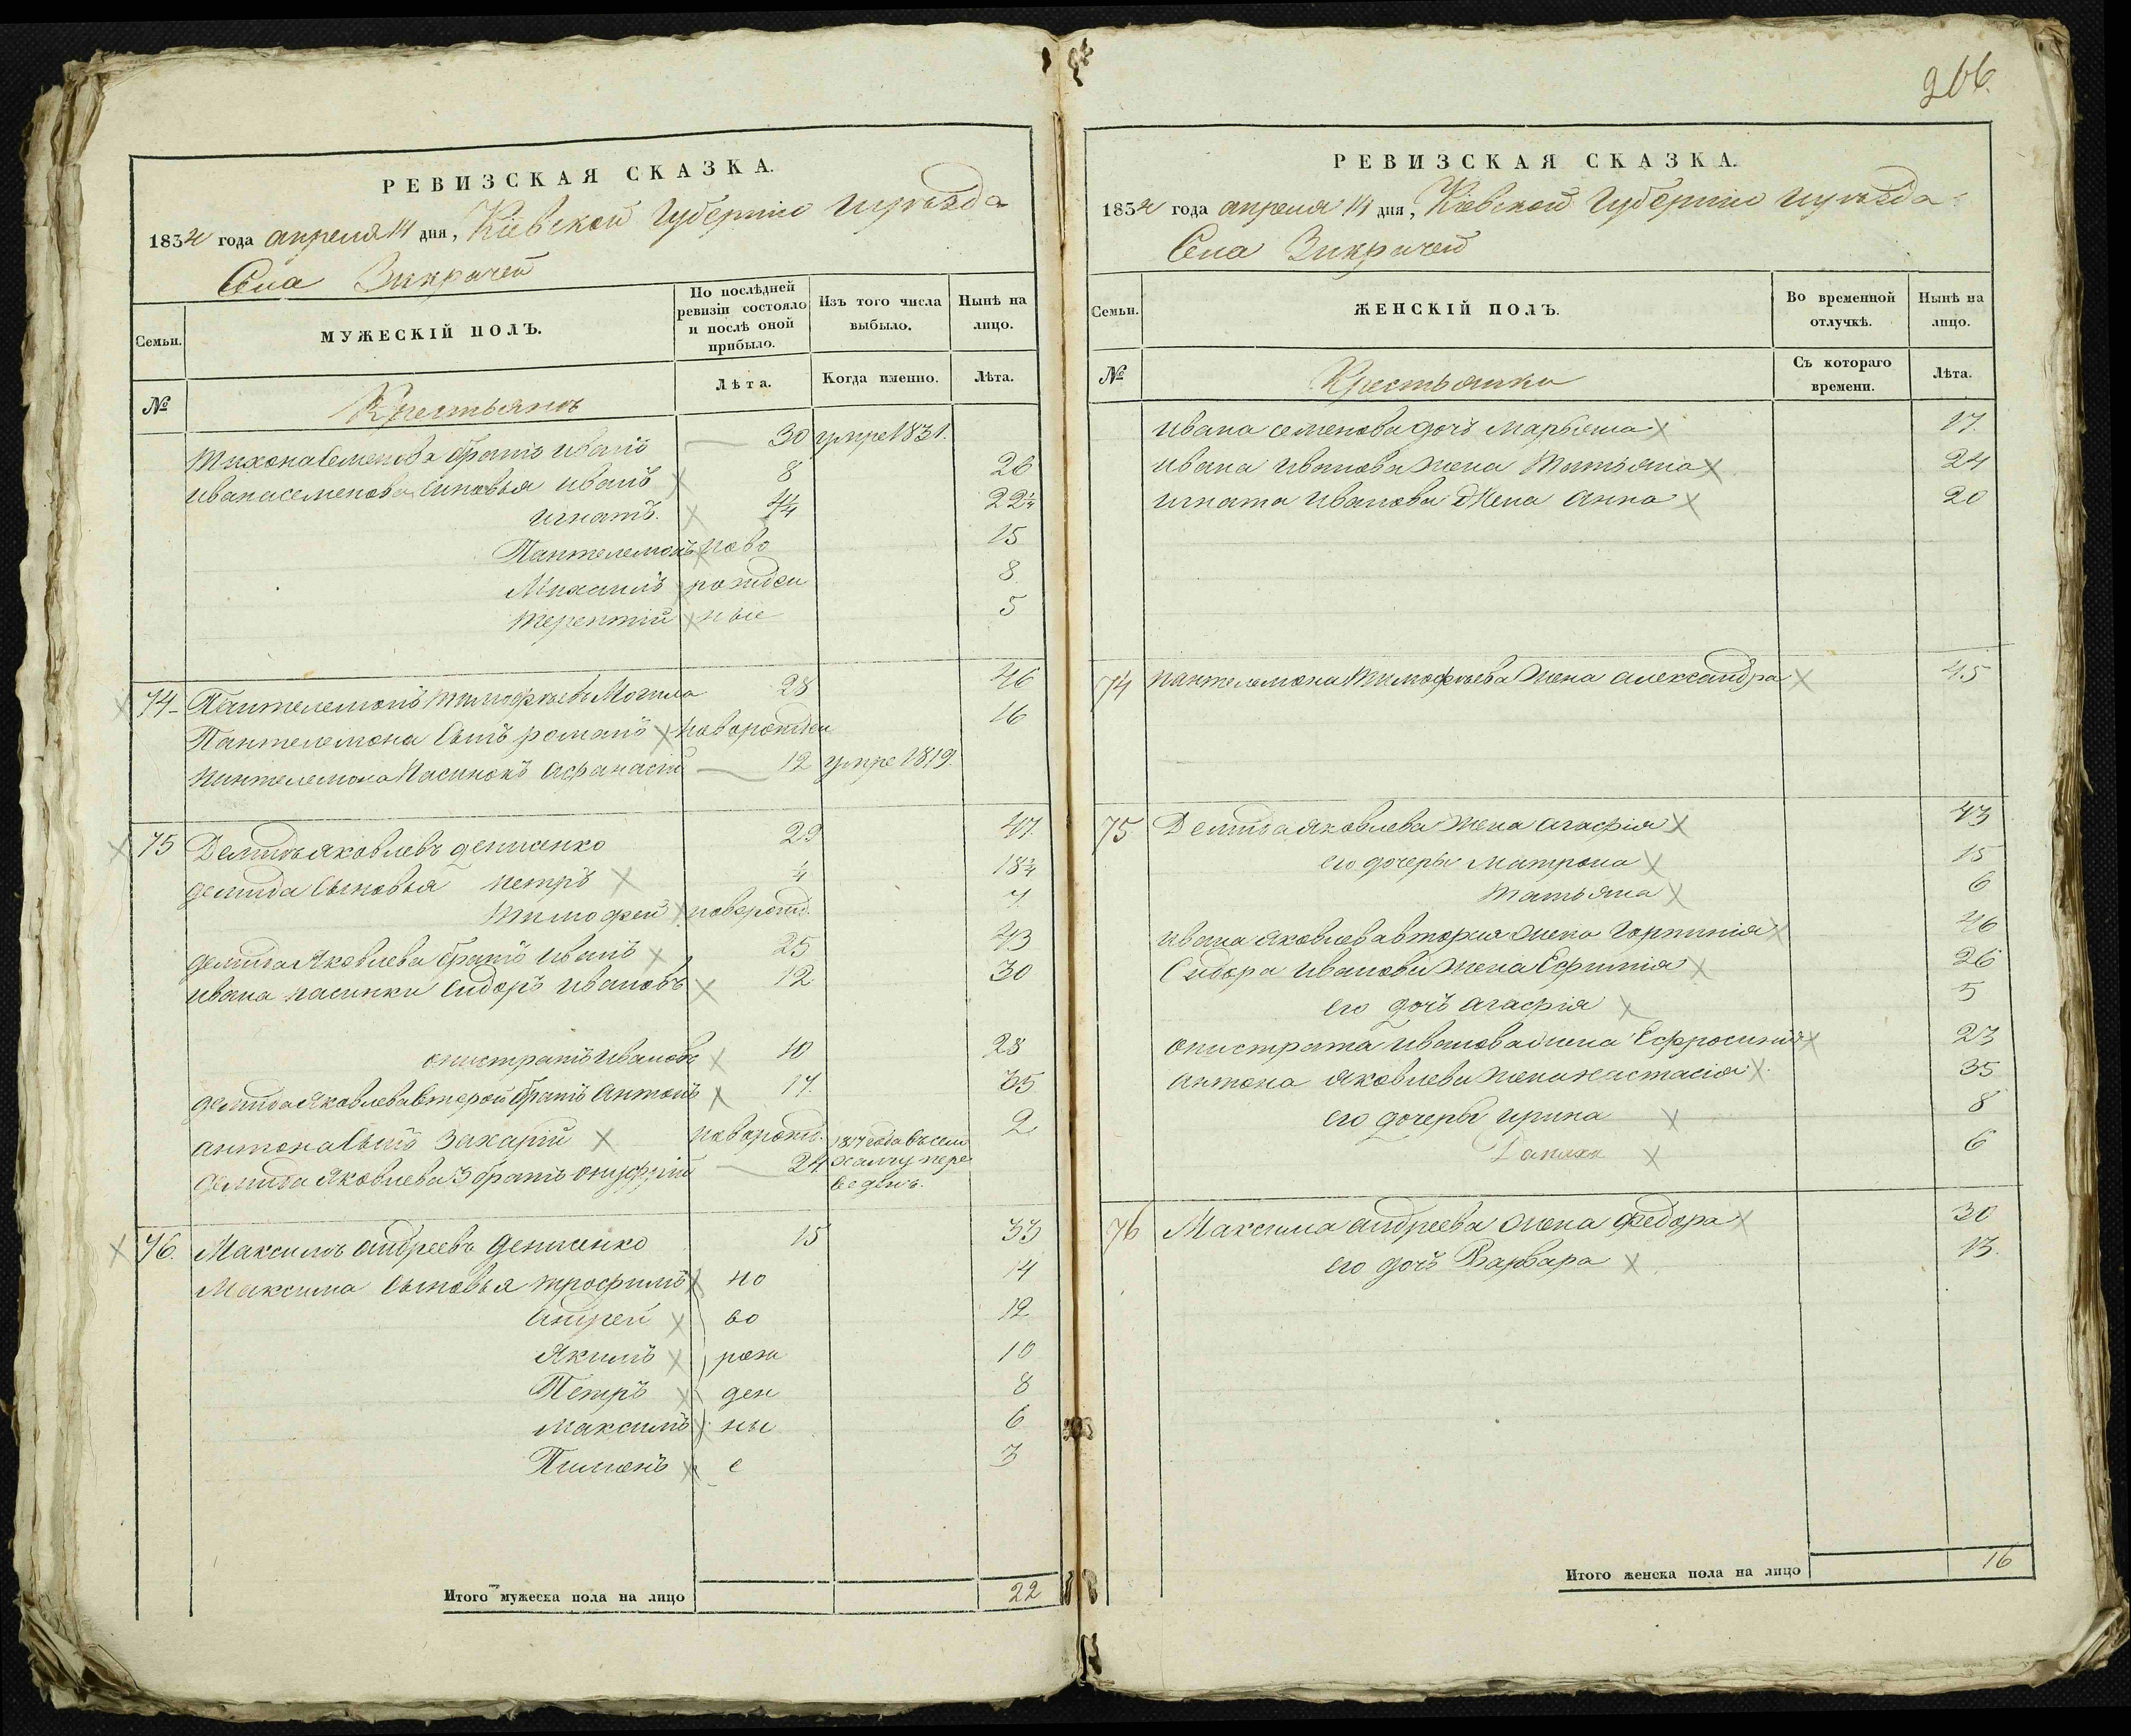 266.
РЕВИЗСКАЯ СКАЗКА.
1834 года апреля 14 дня, Кіевской Губерніи и уѣзда
Села Викрачей
Семьи.
МУЖЕСКІЙ ПОЛЪ.
По послѣдней ревизіи состояло и послѣ оной прибыло.
Изъ того числа выбыло.
Нынѣ на лицо.
№
Крестьянъ
Лѣта.
Когда именно.
Лѣта.
Тихона Семенова братъ иванъ 30 умре 1831.
Ивана семенова сыновья иванъ 8 26
игнатъ. 4¼ 22¼
Пантелемонъ ново 15
Михаилъ рожден 8
терентій ные 5
74 Пантелемонъ тимофеевъ Могила 28 46
Пантелемона Сынъ романъ новорожден 16
пантелемона Пасинокъ афанасій 12 умре 1819.
75 Демидъ яковлевъ денисенко 29 47.
демида Сыновья петръ ¼ 18¼
тимофей новорожд. 7
демида Яковлева братъ иванъ 25 43
ивана пасинки Сидоръ ивановъ 12 30
онистратъ ивановъ 10 28
демида Яковлева второй братъ Антонъ 17. 35
антона Сынъ Захарій новорожд. 2
демида Яковлева 3 братъ онуфрій 24 1817 года въ сел
пере
веденъ.
76. Максимъ андреевъ денисенко 15 33
Максима Сыновья трофимъ но 14
андрей во 12
Якимъ рож 10
Петръ ден 8
максимъ ны 6
Пименъ е 3
Итого мужеска пола на лицо 22
РЕВИЗСКАЯ СКАЗКА.
1834 года апреля 14 дня, Кіевской Губерніи и уѣзда
Села Викрачей
Семьи.
ЖЕНСКІЙ ПОЛЪ.
Во временной отлучкѣ.
Нынѣ на лицо.
№
Крестьянки
Съ котораго времени.
Лѣта.
Ивана семенова дочъ марьяна 17.
ивана иванова жена татьяна 24
игната иванова жена анна 20
74 пантелемона тимофеева жена александра 45
75 Демида яковлева жена агафія 43
его дочеры матрона 15
татьяна 6
ивана яковлева вторая жена горпинія 46
Сидора иванова жена Ефимія 26
его дочъ агафія 5
онистрата иванова жена Ефросинія 23
антона яковлева жена настасія 35
его дочеры ирина 8
6
76 Максима андреева жена федора 30
его дочъ Варвара 13.
Итого женска пола на лицо 16